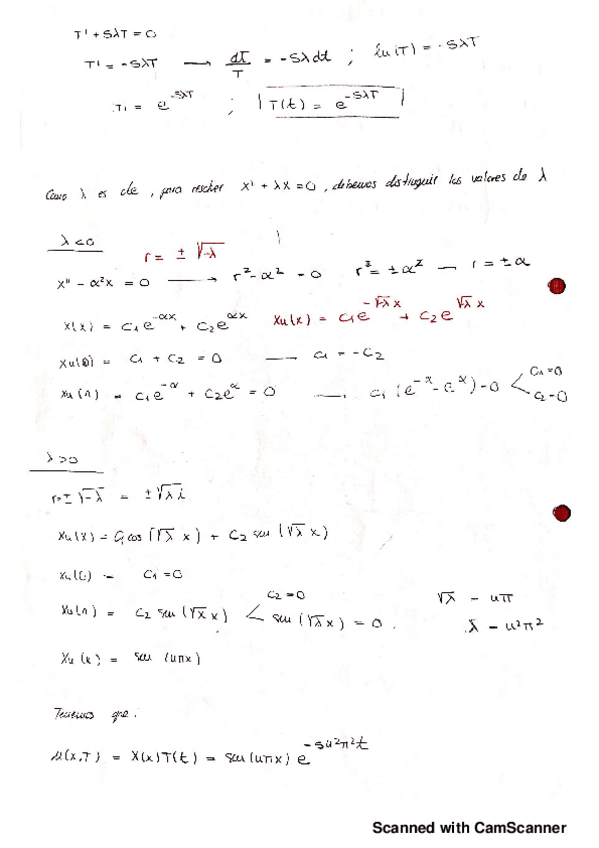 T' + 5λT = 0
T' = -5λT → dT/T = -5λdt ; ln(T) = -5λT
T1 = e^-5λT ; T(t) = e^-5λT
Como λ es cte, para resolver X' + λX = 0, debemos distinguir los valores de λ
λ<0
r = ± √-λ
X'' - α²X = 0 → r² - α² = 0 r² = ±α² — r = ±α
X(x) = C1e^-αx + C2e^αx Xn(x) = C1e^-√λ x + C2e^√λ x
Xn(0) = C1 + C2 = 0 — C1 = -C2
Xn(1) = C1e^-α + C2e^α = 0 — C1(e^-α - e^α) = 0 < C1=0 C2=0
λ>0
r=± √-λ = ±√λ i
Xn(x) = C1 cos(√λ x) + C2 sen(√λ x)
Xn(0) = C1 = 0
Xn(1) = C2 sen(√λ x) < C2=0 sen(√λ x) = 0. √λ = nπ
λ = n²π²
Xn(x) = sen(nπx)
Tenemos que:
μ(x,T) = X(x)T(t) = sen(nπx) e^-5n²π²t
Scanned with CamScanner